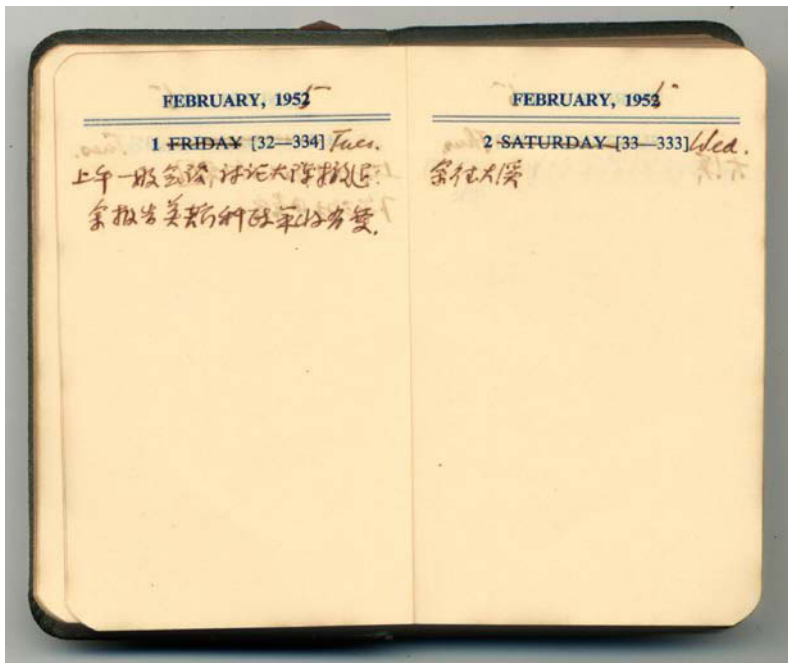 FEBRUARY, 1955
1 FRIDAY [32—334] Tues.
上午一般会谈,讨论大陈撤退.
余报告美
FEBRUARY, 1955
2 SATURDAY [33—333] Wed.
余往大溪